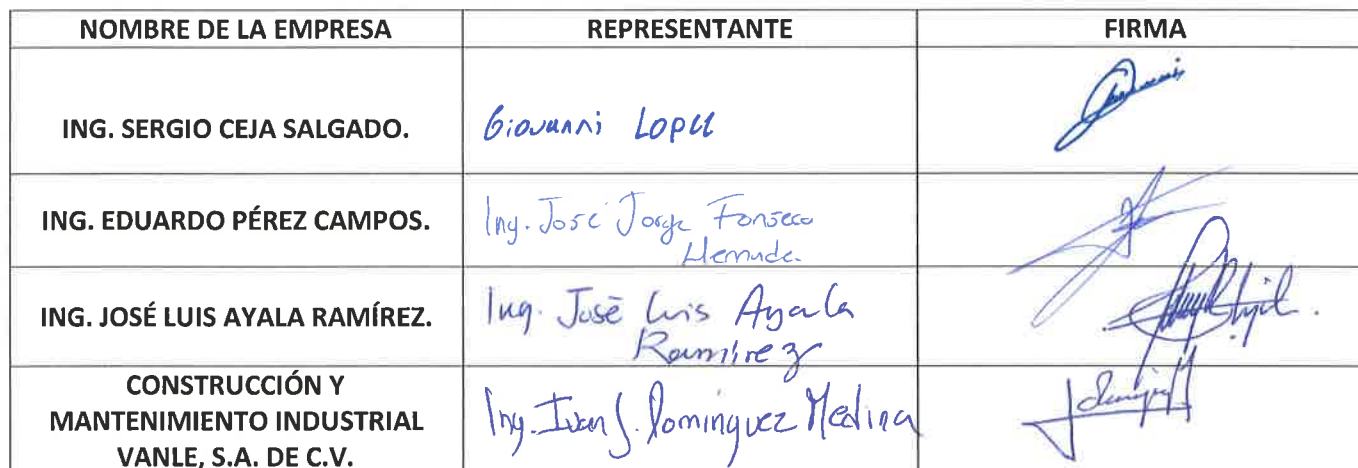 NOMBRE DE LA EMPRESA REPRESENTANTE FIRMA
ING. SERGIO CEJA SALGADO. Giovanni Lopez
ING. EDUARDO PÉREZ CAMPOS. Ing. José Jorge Fonseca
ING. JOSÉ LUIS AYALA RAMÍREZ. Ing. José Luis Ayala
Ramírez
CONSTRUCCIÓN Y
MANTENIMIENTO INDUSTRIAL
VANLE, S.A. DE C.V. Ing. Ivan J. Dominguez Medina